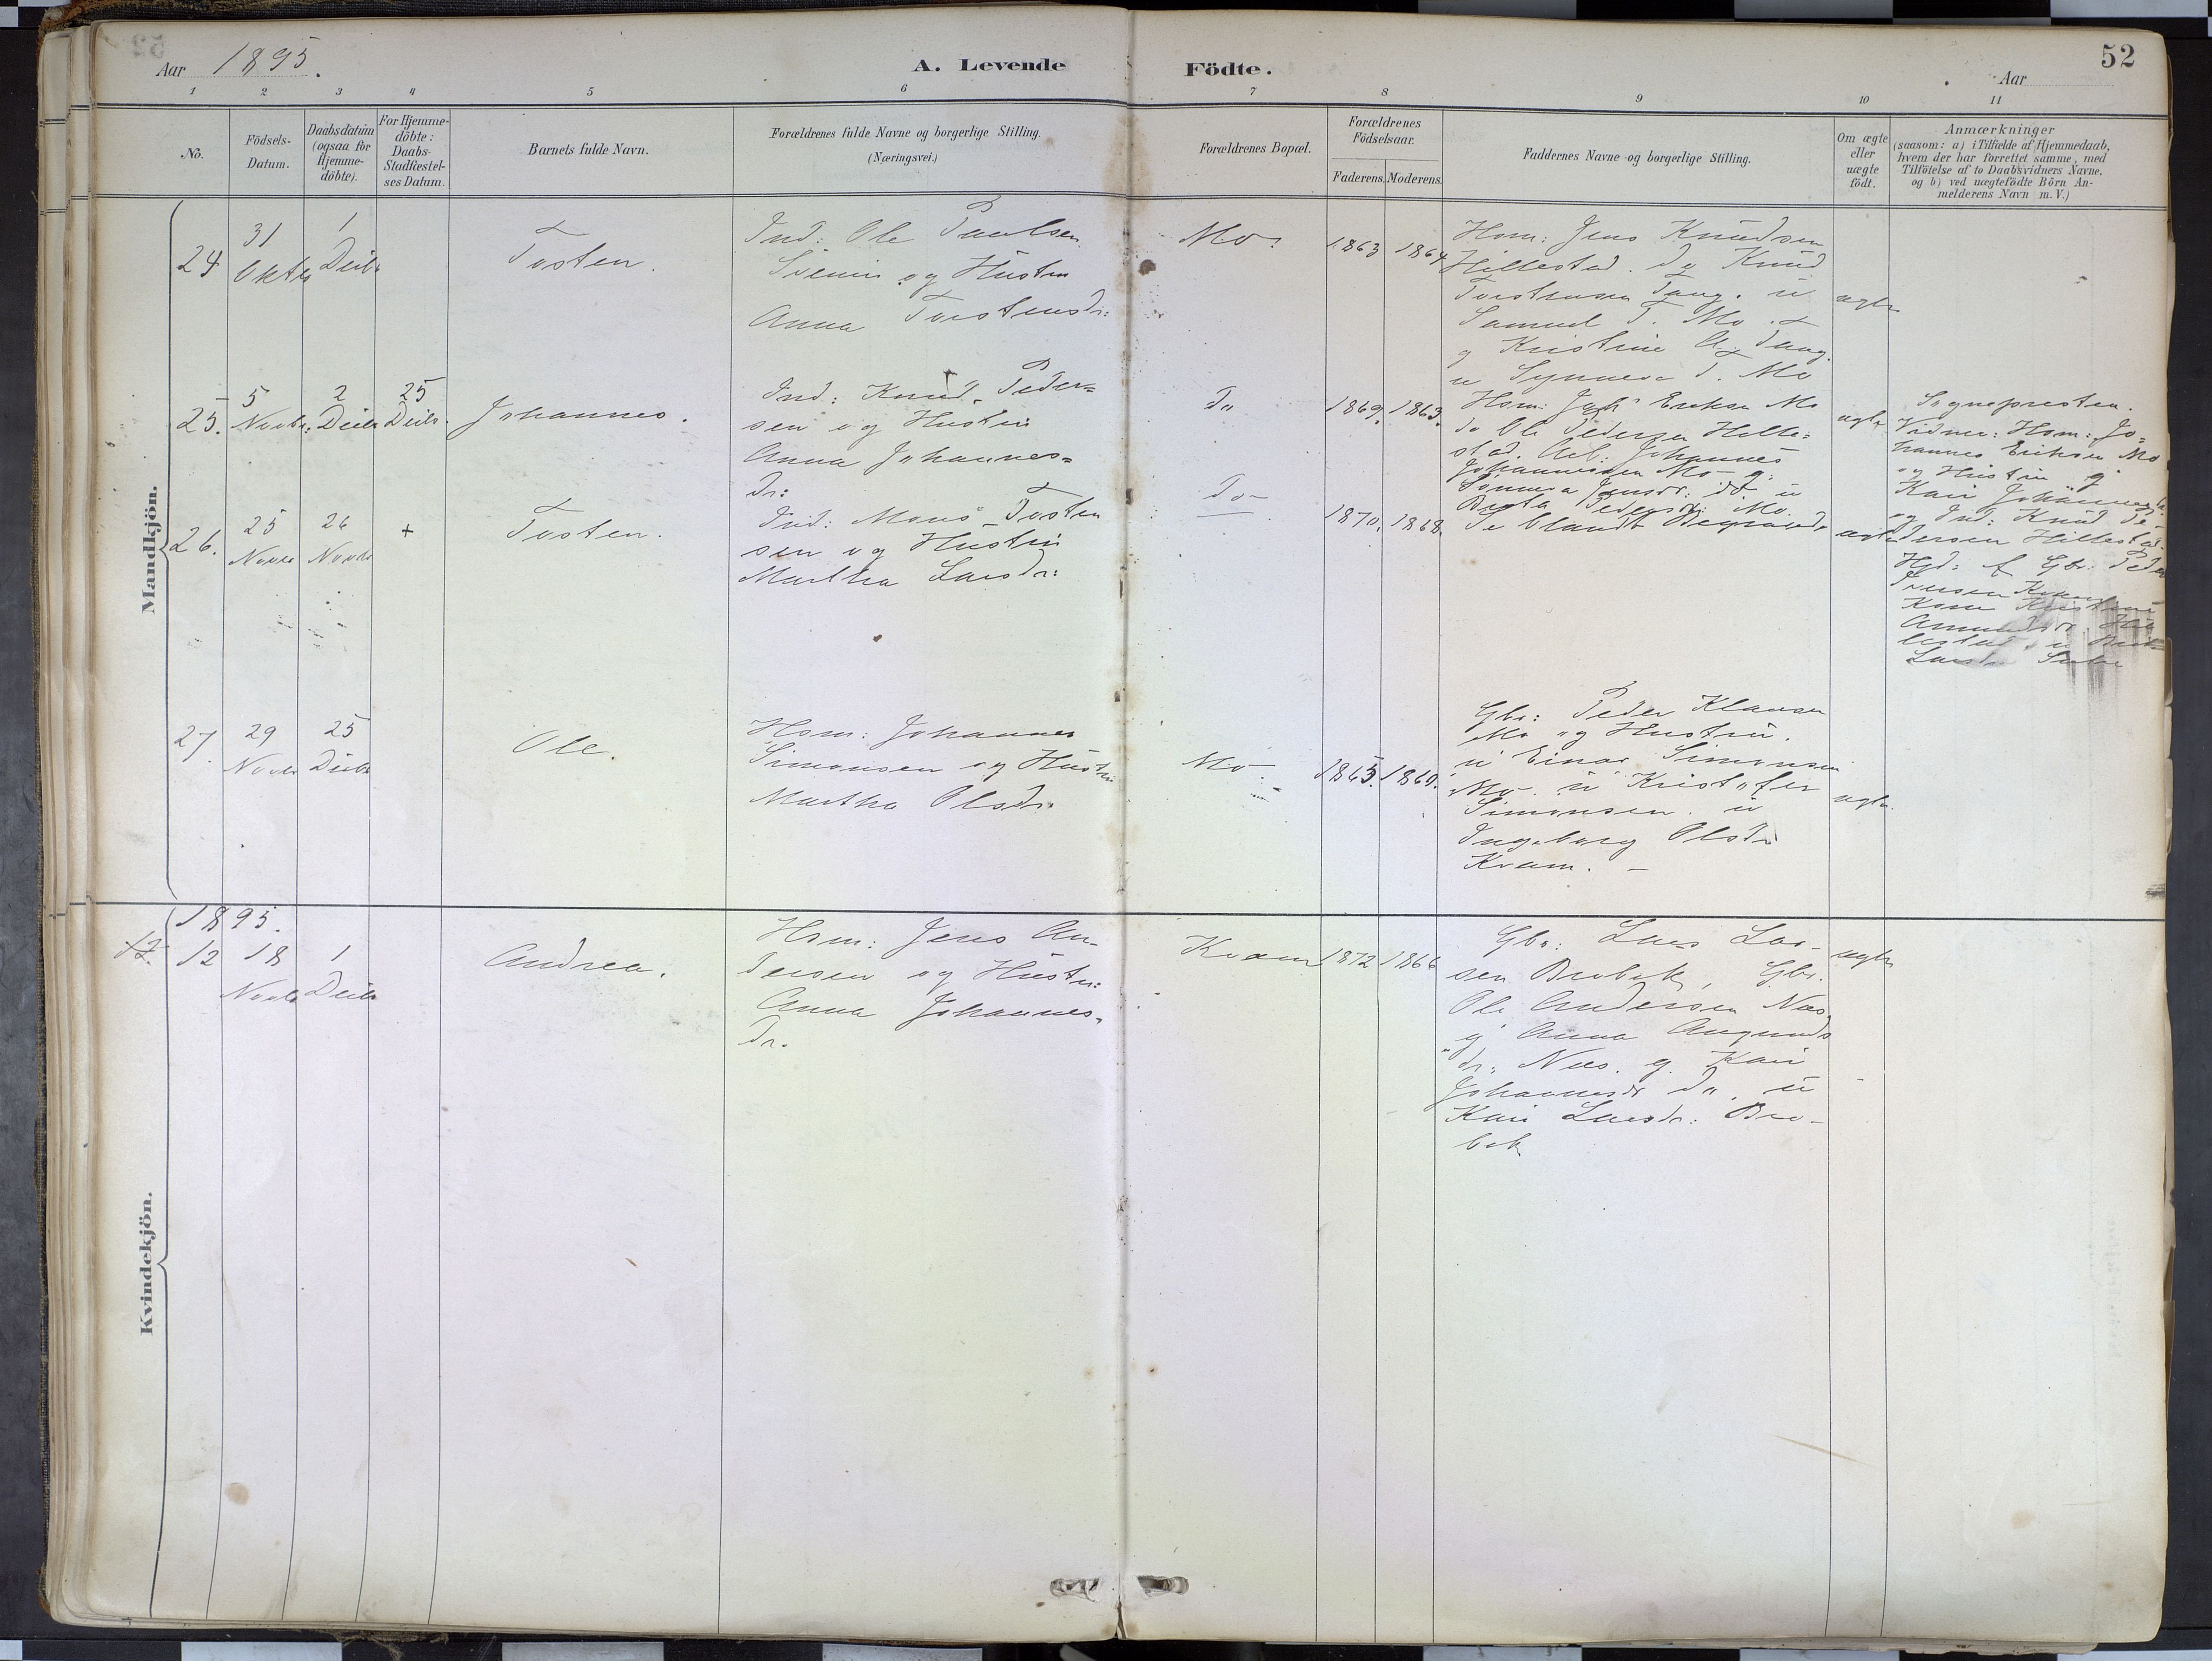 52
Aar 1895.
A. Levende Födte.
Aar
1 2 3 4 5 6 7 8 9 10 11
No.
Födsels-Datum.
Daabsdatum (ogsaa for Hjemme-döbte).
For Hjemme-döbte: Daabs-Stadfæstel-ses Datum.
Barnets fulde Navn.
Forældrenes fulde Navne og borgerlige Stilling.
(Næringsvei.)
Forældrenes Bopæl.
Forældrenes Födselsaar.
Faderens. Moderens.
Faddernes Navne og borgerlige Stilling.
Om ægte eller uægte födt.
Anmærkninger
(saasom: a) i Tilfælde af Hjemmedaab,
hvem der har forrettet samme, med
Tilföielse af to Daabsvidners Navne.
og b) ved uægtefödte Börn An-
melderens Navn m.V.)
Mandkjön.
24
31 Oktbr
1 Decbr
Tosten.
Ind: Ole Paulsen
og Hustru
Anna Torstensdr:
Mo.
1863 1864
Hsm: Jens Knudsen
Hillestad. do Knud
Torstensen Tang. u
Samuel T. Mo
g Kristine Tang.
u Synneva T. Mo
ægte
25.
5 Novbr.
2 Decbr
25 Decbr
Johannes.
Ind: Knud Peder=
sen og Hustru
Anna Johannes=
dr:
Do
1869. 1863.
Hsm: Joh. Eriksen Mo
do Ole Pedersen Hille=
stad. Arb: Johannes
Johannessen Mo g:
Jensdr: do u
Berta Pedersdr: Mo.
ægte
Sognepresten.
Vidner: Hsm: Jo=
hannes Eriksen Mo
og Hustru g
Kari Johannesdr.
26.
25 Novbr
26 Novbr
+
Tosten.
Ind: Mons Tosten
sen og Hustru
Martha Larsdr:
Do
1870. 1868.
Se blandt Begravede
ægte
og Ind: Knud Pe-
dersen Hillestad.
Hjd: af Gbr: Peder
Amundsdr. Hil
lestad u
27.
29 Novbr
25 Decbr
Ole.
Hsm: Johannes
Simonsen og Hustru
Martha Olsdr.
Mo.
1865. 1860.
Gbr: Peder Klausen
Mo og Hustru.
u Einar Simonsen
Mo. u Kristofer
Simonsen. u
Ingeborg Olsdr
Kvam. -
ægte
Kvindekjön.
1895.
12
18 Novbr
1 Decbr
Andrea.
Hsm: Jens An-
dersen og Hustru:
Anna Johannes-
dr.
Kvam
1872 1866
Gbr: Lars Lar-
sen Brobak, Gbr.
Ole Andersen Næs
g Anna Amunds
dr. Næs. g. Kari
Johannesdr do, u
Kari Larsdr: Bro-
bak
ægte